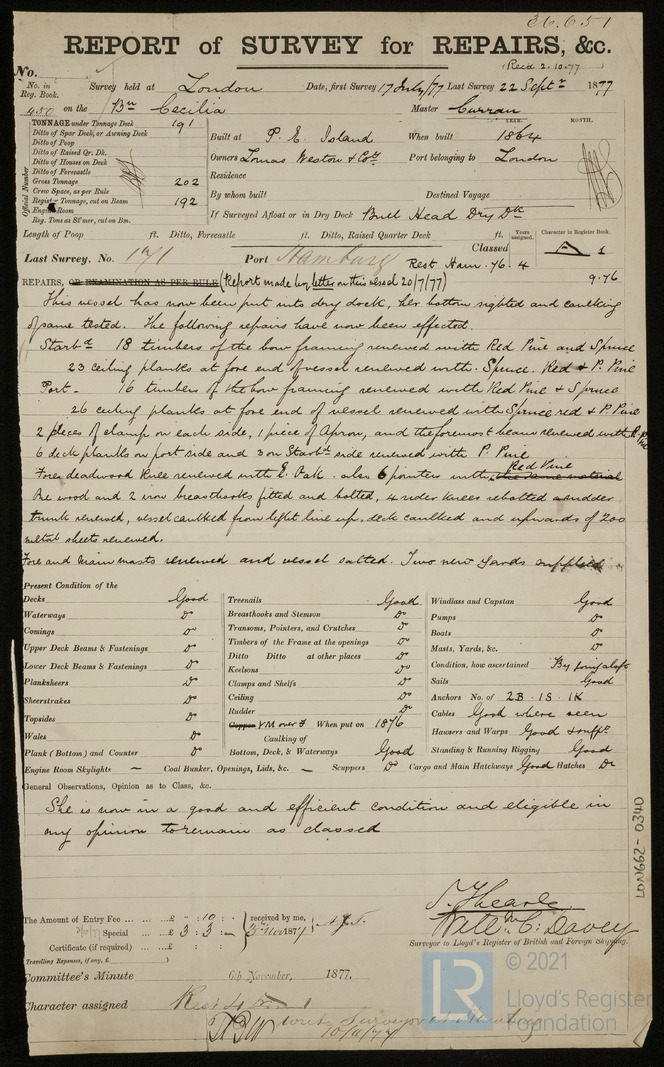 REPORT of SURVEY for REPAIRS, &c.
(Recd 2.10.77
No.
No. in Reg. Book. Survey held at London Date, first Survey 17 July/77 Last Survey 22 Septr 1877
450 on the Bn Cecilia Master Curran
TONNAGE under Tonnage Deck 191
Ditto of Spar Deck, or Awning Deck
Ditto of Poop
Ditto of Raised Qr. Dk.
Ditto of Houses on Deck
Ditto of Forecastle
Gross Tonnage 202
Crew Space, as per Rule
Register Tonnage, cut on Beam 192
Engine Room
Reg. Tons as St'mer, cut on Bm.
Official Number
YEAR. MONTH.
Built at P. E. Island When built 1864
Owners Lomas Weston & Co Port belonging to London
Residence
By whom built Destined Voyage
If Surveyed Afloat or in Dry Dock Bull Head Dry Dk
Length of Poop ft. Ditto, Forecastle ft. Ditto, Raised Quarter Deck ft.
Classed Yrs. assigned. Character in Register Book. A 1
Last Survey, No. 171 Port Hamburg Rest Ham. 76. 4
9.76
REPAIRS, OR EXAMINATION AS PER RULE (Report made by letter on this vessel 20/7/77)
This vessel has now been put into dry dock, her bottom sighted and caulking
of same tested. The following repairs have now been effected.
Starbd 18 timbers of the bow framing renewed with Red Pine and Spruce
23 ceiling planks at fore end of vessel renewed with Spruce. Red & P. Pine
Port - 16 timbers of the bow framing renewed with Red Pine & Spruce
26 ceiling planks at fore end of vessel renewed with Spruce red & P. Pine
2 pieces of clamp on each side, 1 piece of Apron, and the foremost beam renewed with
6 deck planks on port side and 3 on Starbd side renewed with P. Pine
Fore deadwood Knee renewed with E. Oak. also 6 pointers with this same material Red Pine
wood and 2 iron breasthooks fitted and bolted, 4 rider knees rebolted a rudder
trunk renewed, vessel caulked from light line up, deck caulked and upwards of 200
metal sheets renewed.
Fore and main masts renewed and vessel salted. Two new yards supplied
Present Condition of the
Decks Good
Waterways Do
Comings Do
Upper Deck Beams & Fastenings Do
Lower Deck Beams & Fastenings Do
Planksheers Do
Sheerstrakes Do
Topsides Do
Wales Do
Plank (Bottom) and Counter Do
Treenails Good
Breasthooks and Stemson Do
Transoms, Pointers, and Crutches Do
Timbers of the Frame at the openings Do
Ditto Ditto at other places Do
Keelsons Do
Clamps and Shelfs Do
Ceiling Do
Rudder Do
Copper YM over F When put on 1876
Caulking of
Bottom, Deck, & Waterways Good
Windlass and Capstan Good
Pumps Do
Boats Do
Masts, Yards, &c. Do
Condition, how ascertained By going aloft
Sails Good
Anchors No. of 2B. 1S. 1K
Cables Good where seen
Hawsers and Warps Good & sufft
Standing & Running Rigging Good
Engine Room Skylights — Coal Bunker, Openings, Lids, &c. — Scuppers Do Cargo and Main Hatchways Good Hatches Do
General Observations, Opinion as to Class, &c.
She is now in a good and efficient condition and eligible in
my opinion to remain as classed
LON662-0340
The Amount of Entry Fee ... ... ... £ - : 10 : -
Special ... ... £ 3 : 3 : -
Certificate (if required) ... £ : :
received by me,
Travelling Expenses, if any, £
Willm C. Davey
Surveyor to Lloyd's Register of British and Foreign Shipping.
Committee's Minute 6th November, 1877.
Character assigned Rest 4 A 1
write Surveyor at Hamburg
10/11/77
LR
© 2021
Lloyd's Register
Foundation